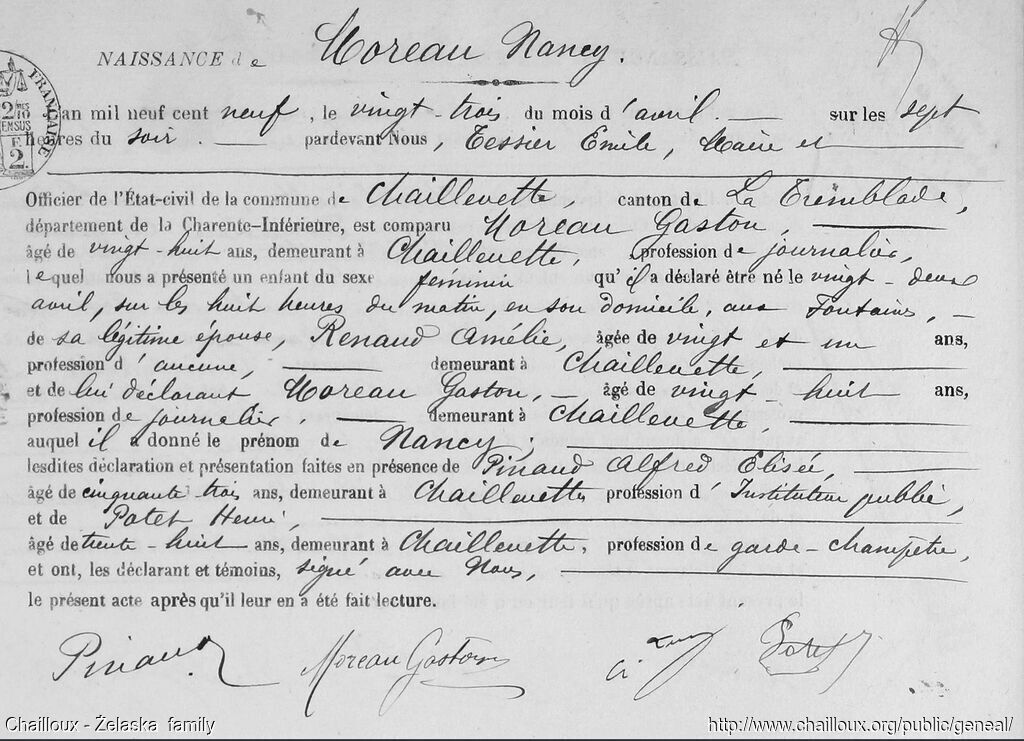 NAISSANCE de Moreau Nancy.
FRANÇAISE
2/10 MES
EN SUS
2.
an mil neuf cent neuf, le vingt-trois du mois d'avril. — sur les sept
heures du soir. — pardevant Nous, Tessier Emile, Maire et
Officier de l'État-civil de la commune de Chaillevette, canton de La Tremblade,
département de la Charente-Inférieure, est comparu Moreau Gaston, —
âgé de vingt-huit ans, demeurant à Chaillevette, profession de journalier,
lequel nous a présenté un enfant du sexe féminin qu'il a déclaré être né le vingt-deux
avril, sur les huit heures du matin, en son domicile, aux Fontaines, —
de sa légitime épouse, Renaud Amélie, âgée de vingt et un ans,
profession d'aucune, — demeurant à Chaillevette, —
et de lui déclarant Moreau Gaston, — âgé de vingt-huit ans,
profession de journalier, — demeurant à Chaillevette, —
auquel il a donné le prénom de Nancy; —
lesdites déclaration et présentation faites en présence de Pinaud Alfred Elisée, —
âgé de cinquante-trois ans, demeurant à Chaillevette profession d'Instituteur public,
et de Potet Henri, —
âgé de trente-huit ans, demeurant à Chaillevette, profession de garde-champêtre,
et ont, les déclarant et témoins, signé avec Nous, —
le présent acte après qu'il leur en a été fait lecture.
Pinaud Moreau Gaston Potet
Chailloux - Żelaska family http://www.chailloux.org/public/geneal/